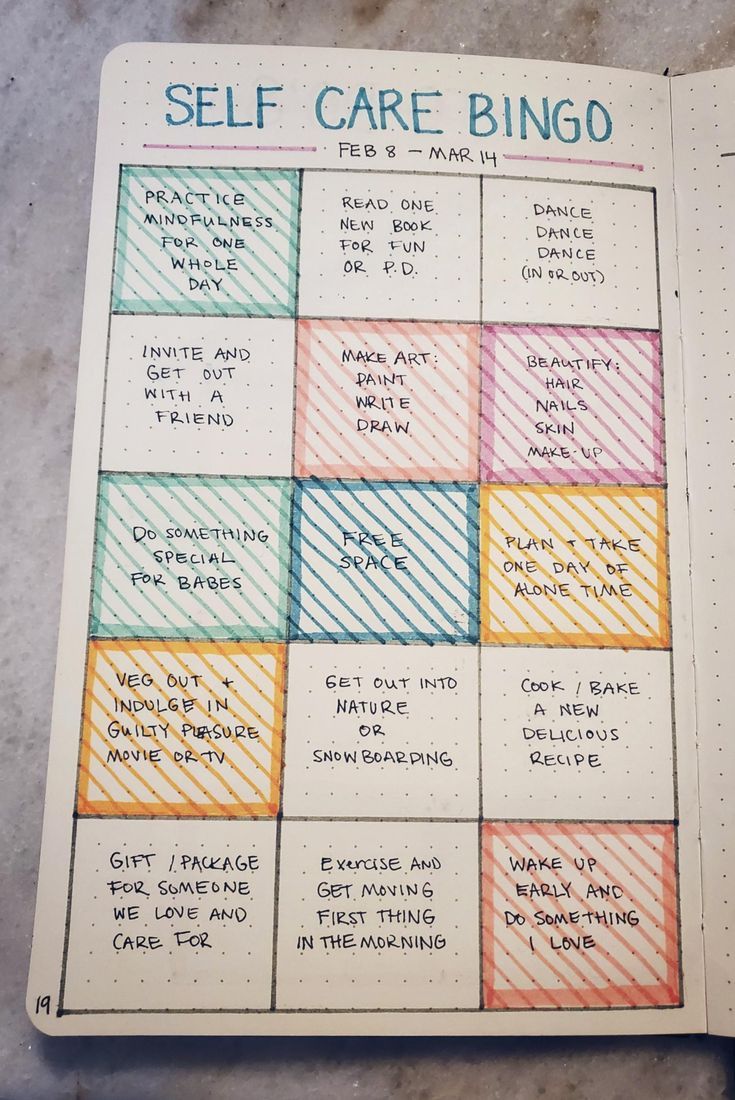 SELF CARE BINGO
FEB 8 - MAR 14
PRACTICE
MINDFULNESS
FOR ONE
WHOLE
DAY
READ ONE
NEW BOOK
FOR FUN
OR P.D.
DANCE
DANCE
DANCE
(IN OR OUT)
INVITE AND
GET OUT
WITH A
FRIEND
MAKE ART:
PAINT
WRITE
DRAW
BEAUTIFY:
HAIR
NAILS
SKIN
MAKE-UP
DO SOMETHING
SPECIAL
FOR BABES
FREE
SPACE
PLAN + TAKE
ONE DAY OF
ALONE TIME
VEG OUT +
INDULGE IN
GUILTY PLEASURE
MOVIE OR TV
GET OUT INTO
NATURE
OR
SNOWBOARDING
COOK / BAKE
A NEW
DELICIOUS
RECIPE
GIFT / PACKAGE
FOR SOMEONE
WE LOVE AND
CARE FOR
Exercise AND
GET MOVING
FIRST THING
IN THE MORNING
WAKE UP
EARLY AND
DO SOMETHING
I LOVE
19